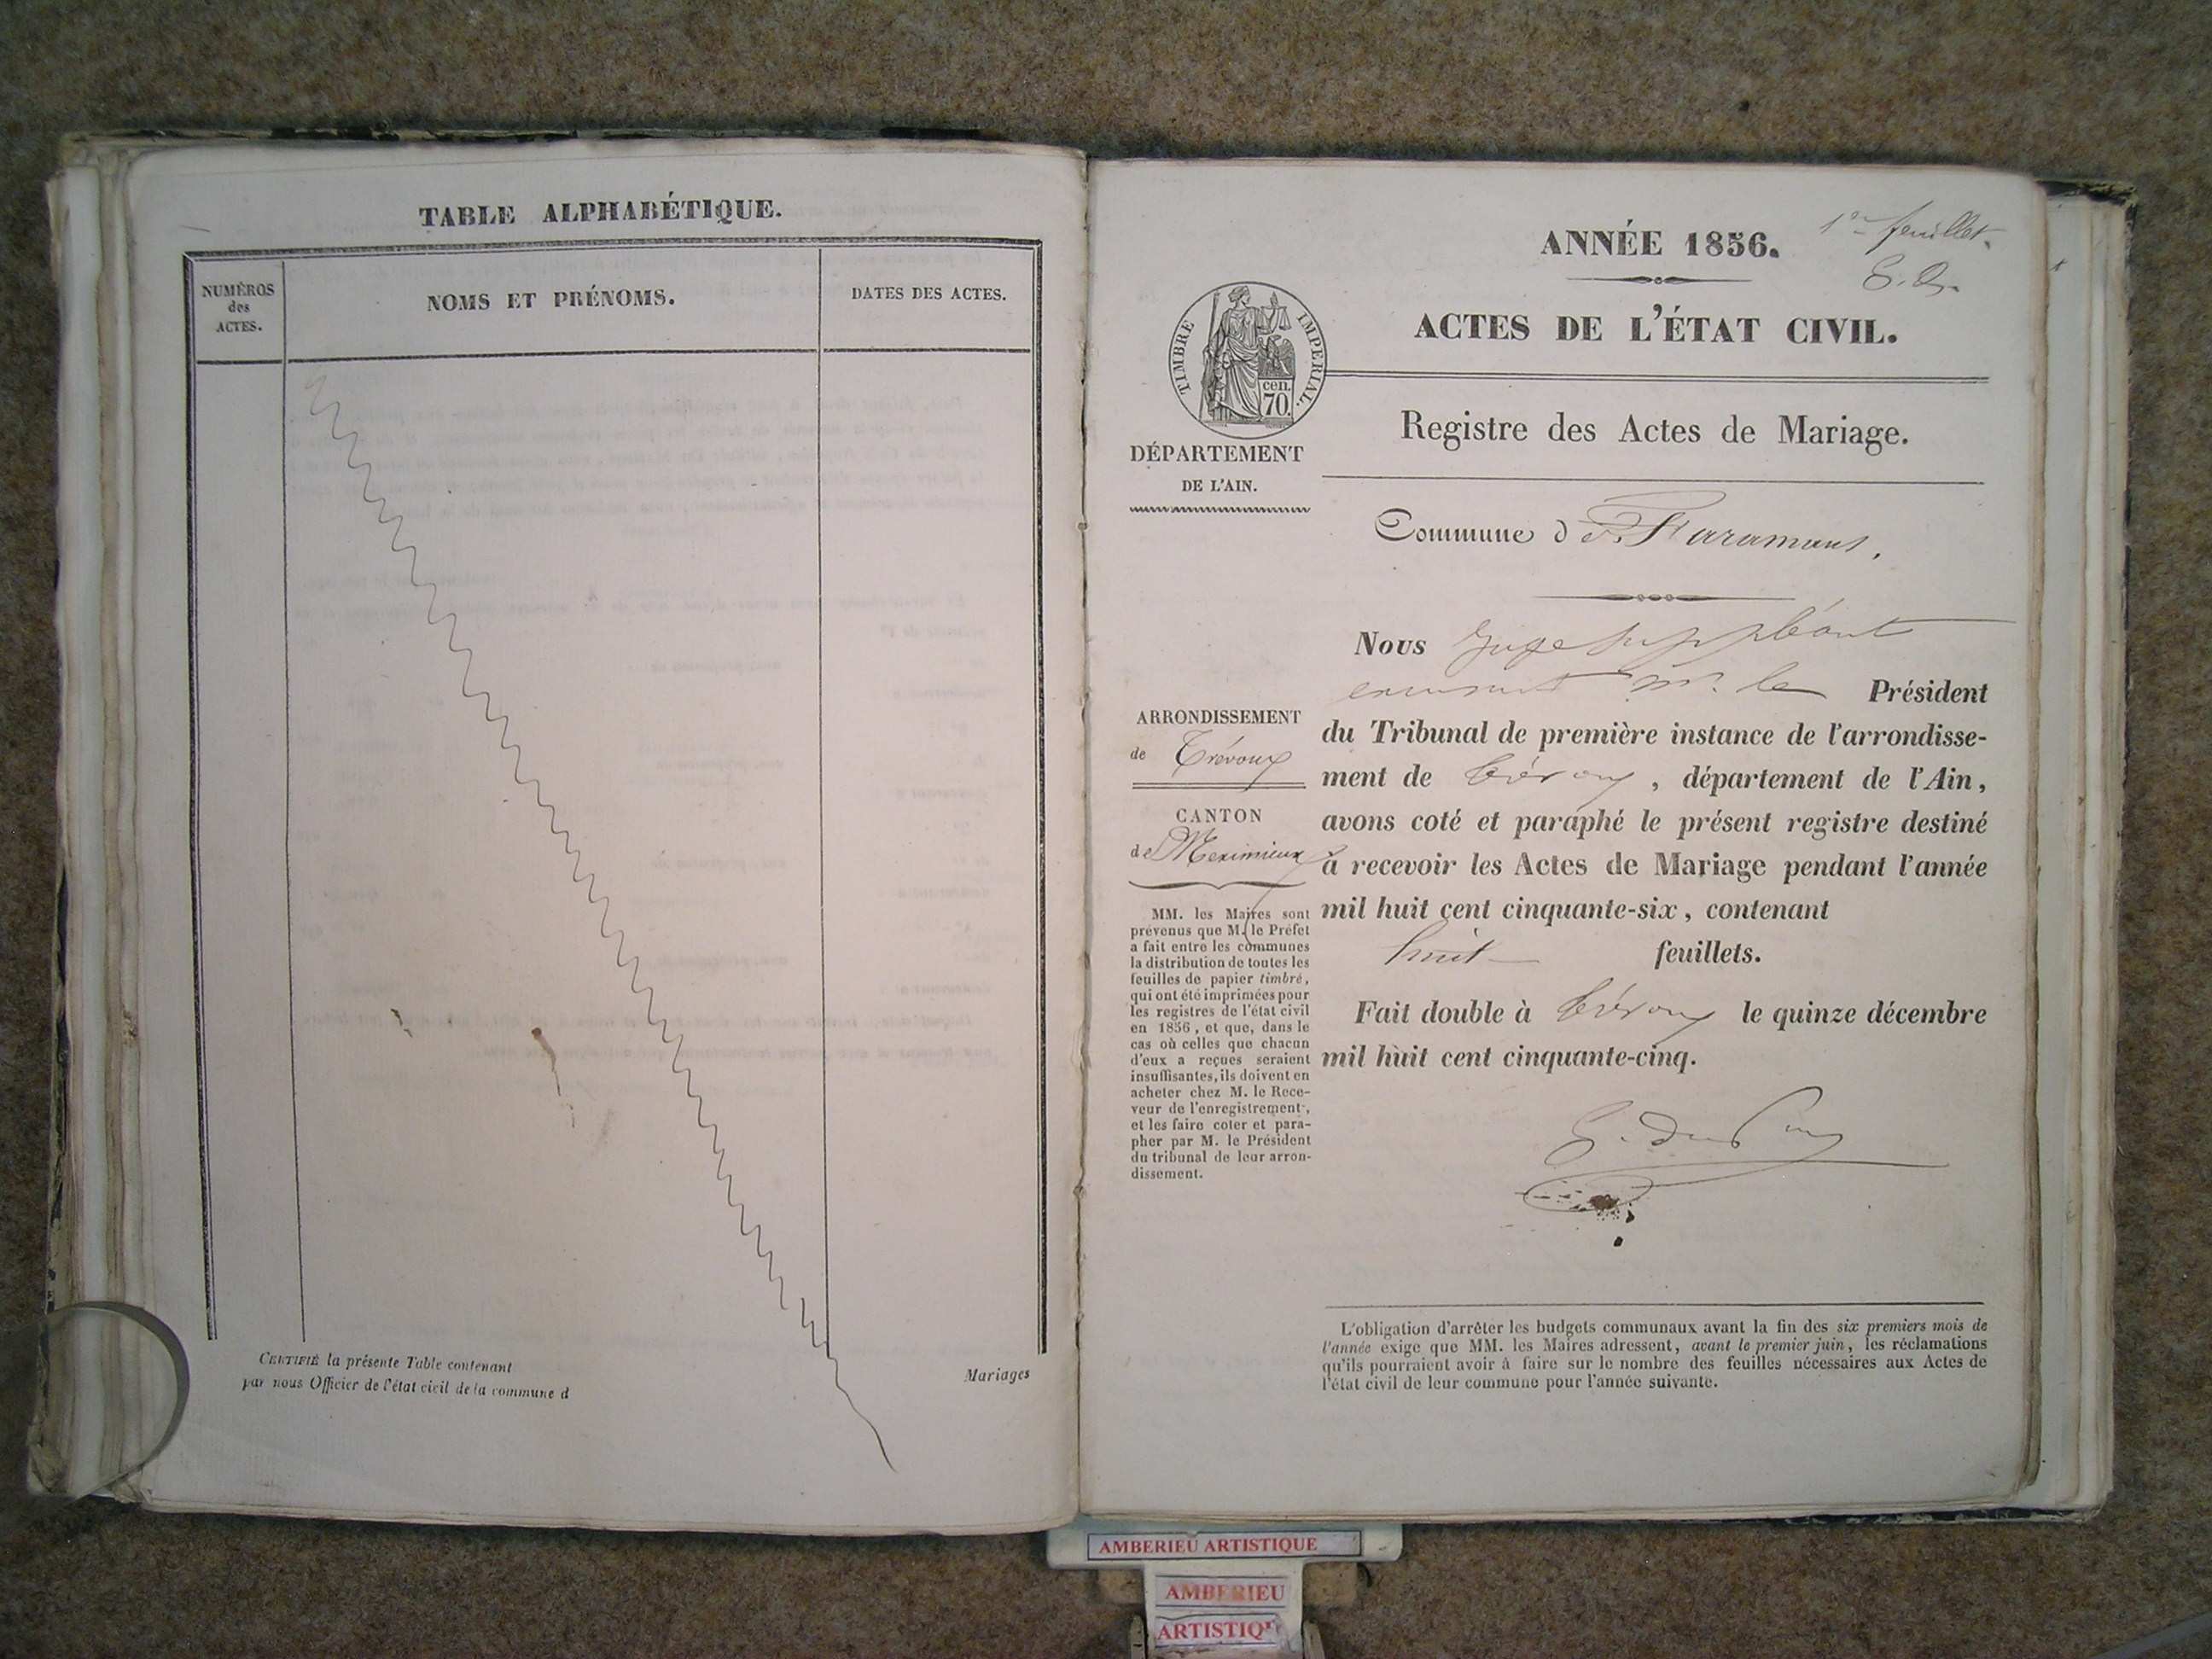 TABLE ALPHABÉTIQUE.
NUMÉROS
des
ACTES.
NOMS ET PRÉNOMS.
DATES DES ACTES.
CERTIFIÉ la présente Table contenant
par nous Officier de l'état civil de la commune d
Mariages
1er feuillet.
ANNÉE 1856.
ACTES DE L'ÉTAT CIVIL.
TIMBRE IMPERIAL.
cen.
70.
Registre des Actes de Mariage.
DÉPARTEMENT
DE L'AIN.
Commune de Faramans.
Nous Juge suppléant
Mr. le Président
ARRONDISSEMENT
de Trévoux
CANTON
de Meximieux
du Tribunal de première instance de l'arrondisse-
ment de trévoux, département de l'Ain,
avons coté et paraphé le présent registre destiné
à recevoir les Actes de Mariage pendant l'année
mil huit cent cinquante-six, contenant
huit feuillets.
Fait double à trévoux le quinze décembre
mil huit cent cinquante-cinq.
MM. les Maires sont
prévenus que M. le Préfet
a fait entre les communes
la distribution de toutes les
feuilles de papier timbré,
qui ont été imprimées pour
les registres de l'état civil
en 1856, et que, dans le
cas où celles que chacun
d'eux a reçues seraient
insuffisantes, ils doivent en
acheter chez M. le Rece-
veur de l'enregistrement,
et les faire coter et para-
pher par M. le Président
du tribunal de leur arron-
dissement.
L'obligation d'arrêter les budgets communaux avant la fin des six premiers mois de
l'année exige que MM. les Maires adressent, avant le premier juin, les réclamations
qu'ils pourraient avoir à faire sur le nombre des feuilles nécessaires aux Actes de
l'état civil de leur commune pour l'année suivante.
AMBERIEU ARTISTIQUE
AMBERIEU
ARTISTIQU